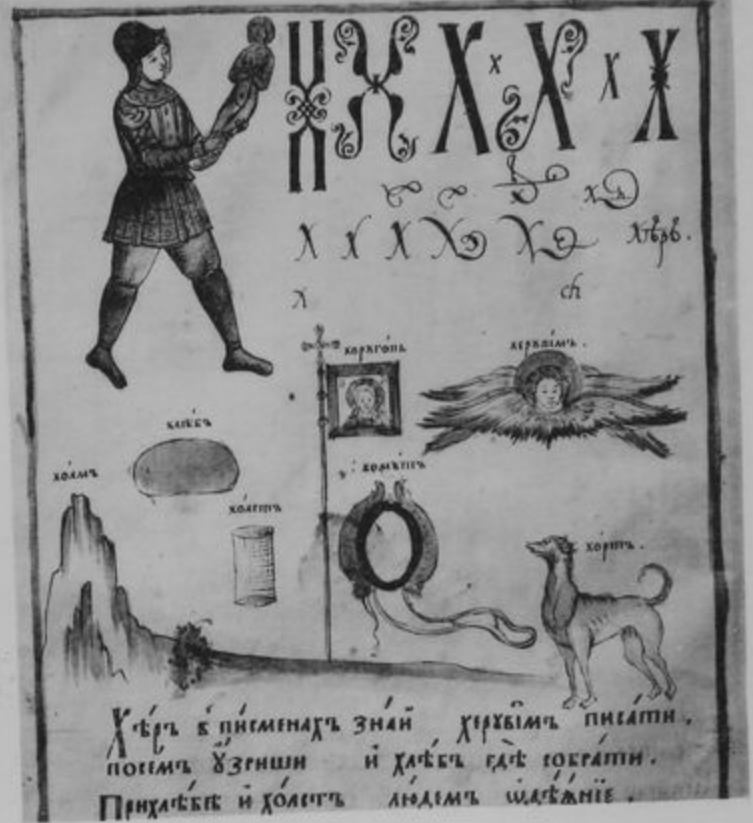 Х Х Х х Х х Х
х х х х
х х х х х хѣръ.
х ch
хорꙋговь херꙋвімъ.
хлѣбъ
хо́лмъ хомꙋтъ
хо́лстъ
хо́ртъ.
Хѣ́ръ в̾ пи́сменахъ зна́й херꙋві́мъ писа́ти.
посемъ ᲂу҆́зриши и҆ хлѣ́бъ гдѣ̀ собра́ти.
Прихлѣ́бѣ и҆ хо́лстъ лю́демъ ѡ҆дѣѧ́нїе.